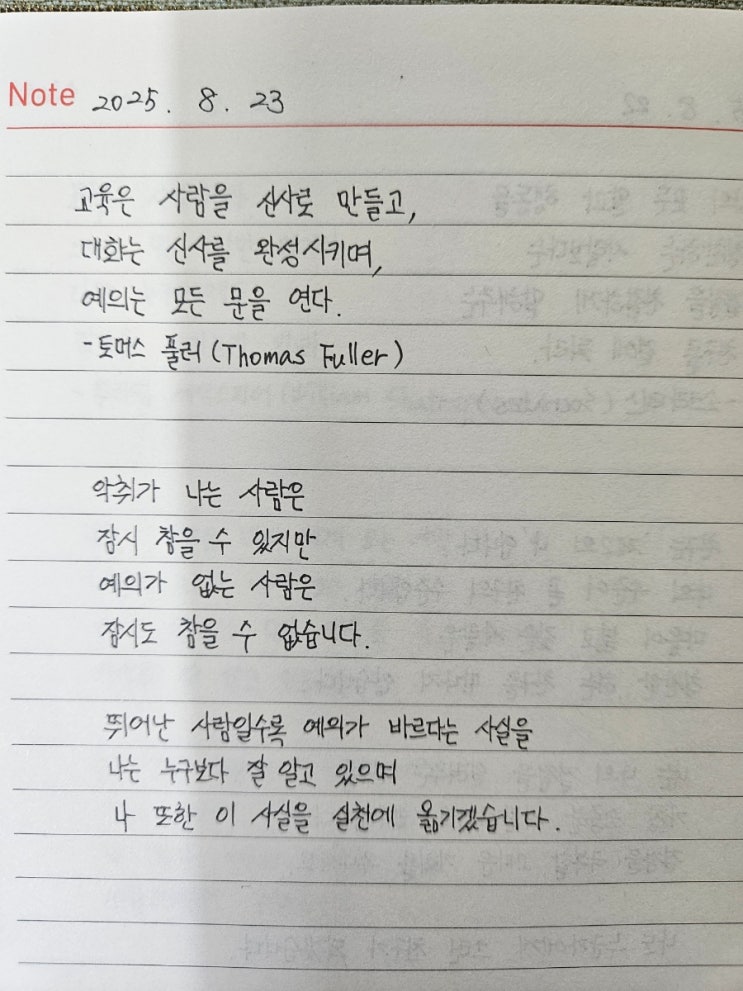 Note 2025. 8. 23
교육은 사람을 신사로 만들고,
대화는 신사를 완성시키며,
예의는 모든 문을 연다.
- 토머스 풀러 (Thomas Fuller)
악취가 나는 사람은
잠시 참을 수 있지만
예의가 없는 사람은
잠시도 참을 수 없습니다.
뛰어난 사람일수록 예의가 바르다는 사실을
나는 누구보다 잘 알고 있으며
나 또한 이 사실을 실천에 옮기겠습니다.